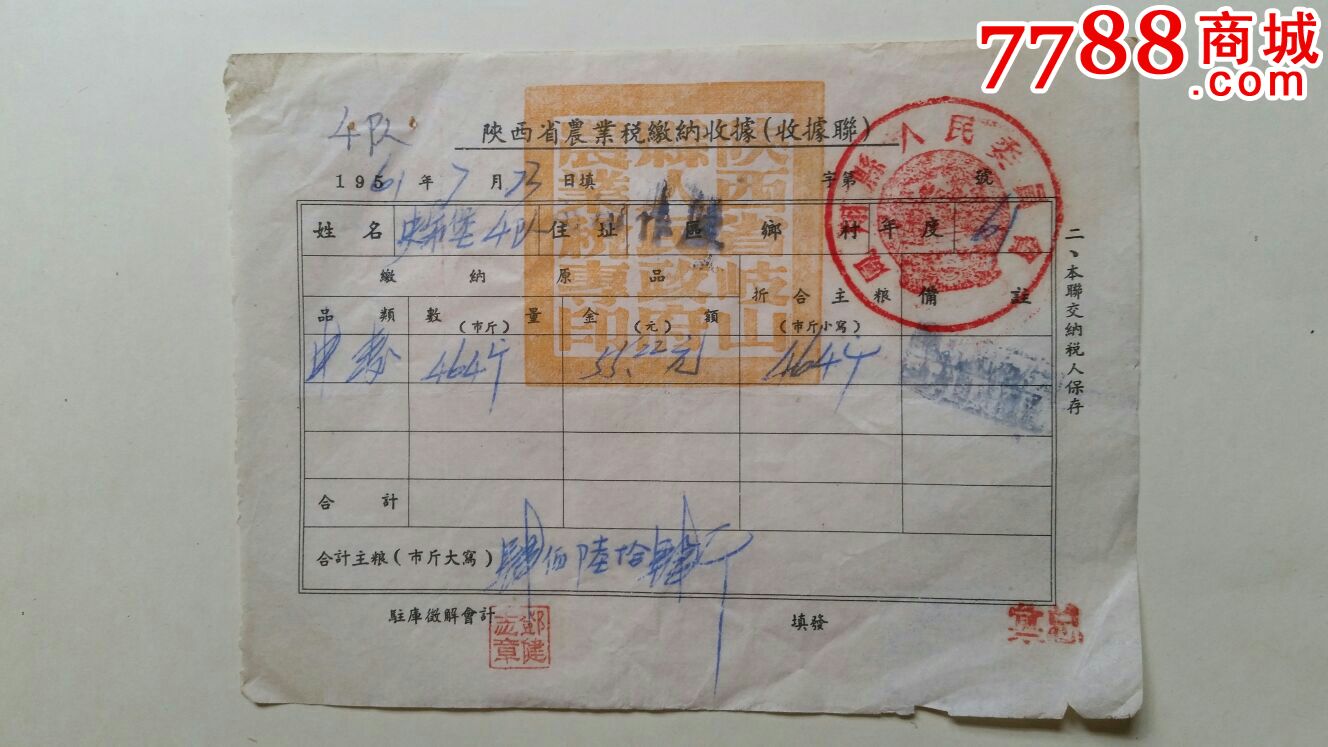 7788商城
.com
4队
陝西省農業税繳納收據(收據聯)
1961年7月23日填 字第 號
姓名 4队 住址 區 鄉 村 年度 61
繳納原品 折合主粮 備註
品類 數量(市斤) 金額(元) (市斤小寫)
464斤 55.22元 464斤
合計
合計主粮(市斤大寫) 肆佰陸拾肆斤
駐庫徵解會計 填發
鄧健志章
二、本聯交納税人保存
陝西省岐山縣人民政府農業税專印
縣人民委員會